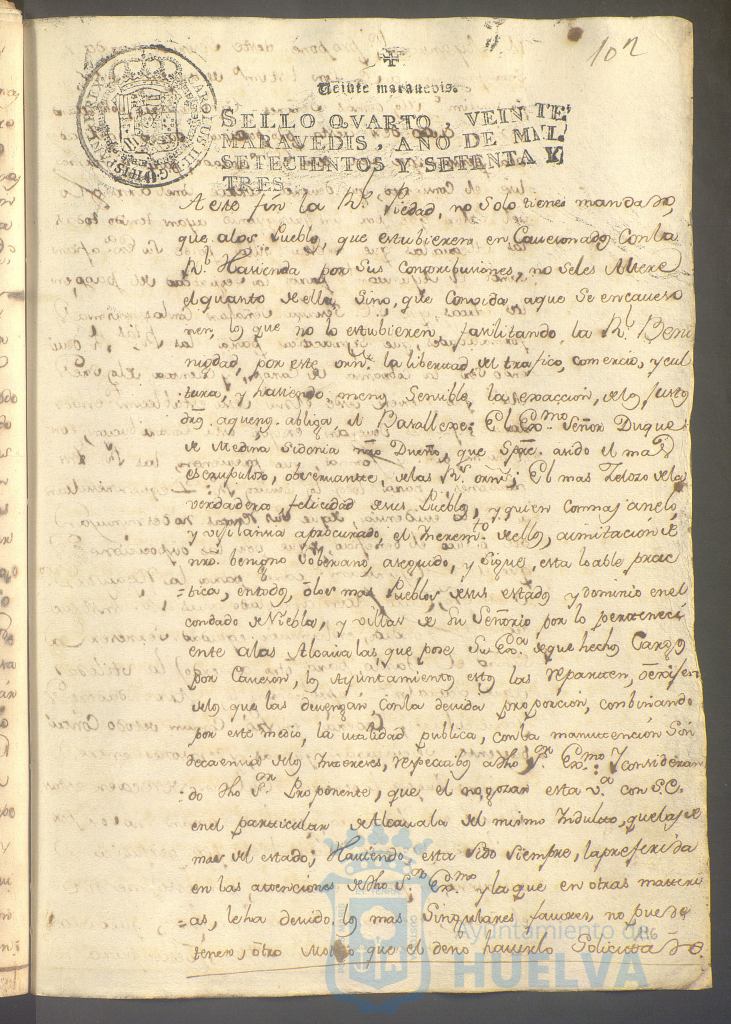 107
Veinte maravedis.
SELLO QVARTO, VEINTE
MARAVEDIS, AÑO DE MIL
SETECIENTOS Y SETENTA Y
TRES.
CAROLUS III D.G. HISPANIAR
A este fin la Rl. Piedad, no solo tiene mandado,
que alos Pueblos, que estubieren en Cavezonados Conla
Rl. Hazienda por sus Contribuciones, no seles Altere
el quanto de ella, Sino, que Convida, aque Se encavezo
nen, los que no lo estubieren, fasilitando la Rl. Beni
nidad, por este la libertad, del trafico, comercio, y cul
tura, y haciendo menos Sensible la exaccion, de los justos
dros. aqueños. obliga el Basallaxe: El Exmo. Señor Duque
de Medina Sidonia nro Dueño, que Spre. asido el mas
escrupulozo, observante, delas Rs. orns; El mas Zelozo dela
verdadera felicidad desus Pueblos, y quien conmas anelo,
y vijilanzia aprocurado, el Incremto. dello, aimitacion de
nro. benigno Soberano, aseguido, y Sigue, esta loable prac
=tica, entodos, los mas Pueblos desus estados y dominio enel
condado de Niebla, y villas de Su Señorio por lo perteneci
ente alas Alcavalas que posee Su Exa. de que hechos Cargo
por Cavezon, los Ayuntamientos estos las reparten,
delos que las devengan, conla devida proporcion, combinando
por este medio, la utilidad publica, conla manutencion Son
decaencia delos Intereses, respectibos adho Sr. Exmo: Y consideran
do dho Sr. Proponente, que el no gozar esta va. con S.E.
enel particular de Alcavala del mismo Indulto, quelas de
mas del estado; Haviendo, esta sido siempre, la preferida
en las atenciones de dho Sr. Exmo. y la que en otras materi
=as, le ha devido, los mas Singulares favores, no puede
tener, otro Motivo que el deno haverlo Solicitado
116
Ayuntamiento de
HUELVA